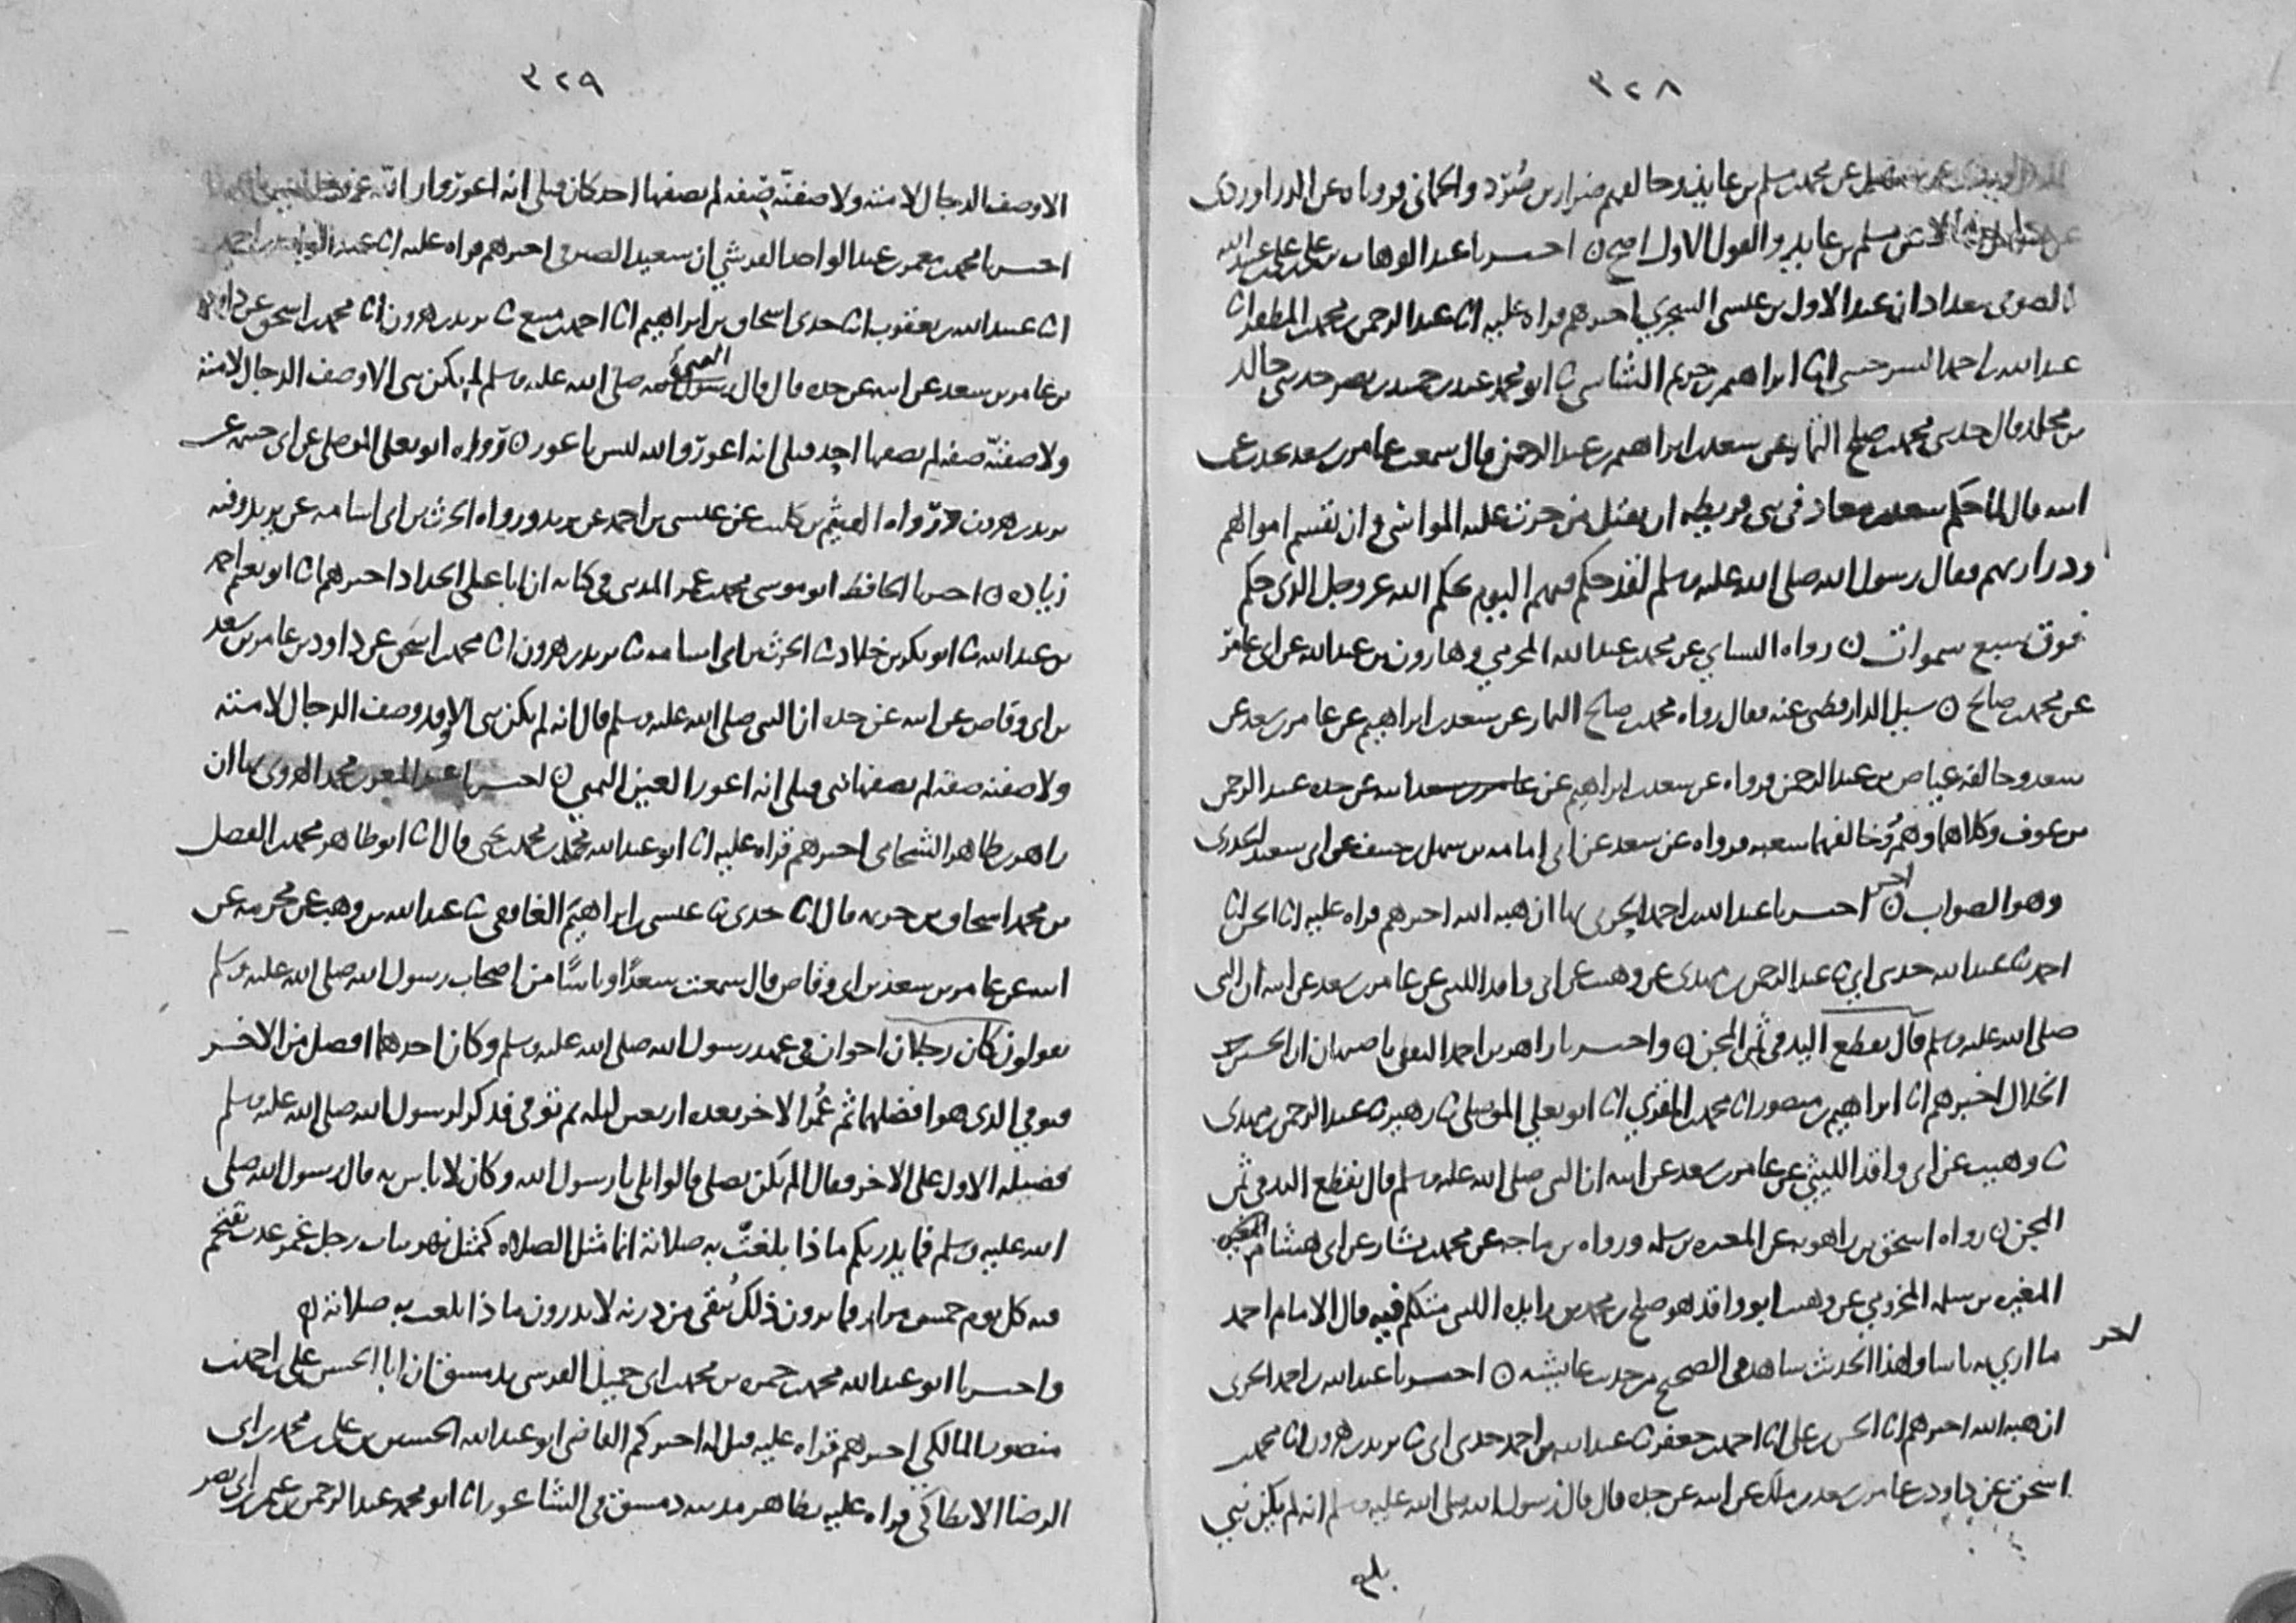 ٣٢٨
عن محمد بن مسلم بن عايذ وخالفهم ضرار بن صُرَد والحماني فروياه عن الدراوردي
عن مسلم بن عايذ والقول الاول اصح ن اخبرنا عبد الوهاب بن علي بن علي بن عبيد الله
الصوفي ببغداد ان عبد الاول بن عيسى السجزي اخبرهم قراه عليه انا عبد الرحمن بن محمد بن المظفر انا
عبد الله بن احمد السرخسي انا ابراهيم بن خزيم الشاشي ثنا ابو محمد عبد بن حميد بن نصر حدثني خالد
بن مخلد قال حدثني محمد بن صلح التمار عن سعد بن ابراهيم بن عبد الرحمن قال سمعت عامر بن سعد يحدث عن
ابيه قال لما حكم سعد بن معاذ في بني قريظه ان يقتل من جرت عليه المواسي و ان تقسم اموالهم
وذراريهم فقال رسول الله صلى الله عليه وسلم لقد حكم فيهم اليوم بحكم الله عز وجل الذي حكم
فوق سبع سموات ن رواه النسايي عن محمد بن عبد الله المخرمي وهارون بن عبد الله عن ابي عامر
عن محمد بن صالح ن سيل الدارقطني عنه فقال رواه محمد بن صالح التمار عن سعد بن ابراهيم عن عامر بن سعد عن
سعد وخالفه عياض بن عبد الرحمن فرواه عن سعد بن ابراهيم عن عامر بن سعد ابيه عن جده عبد الرحمن
بن عوف وكلاهما وهم وخالفهما شعبه فرواه عن سعد عن ابي امامه بن سهل بن حنيف عن ابي سعيد الخدري
وهو الصواب ن اخر اخبرنا عبد الله بن احمد الحربي بها ان هبه الله اخبرهم قراه عليه انا الحسن انا
احمد ثنا عبد الله حدثني ابي ثنا عبد الرحمن بن مهدي عن وهيب عن ابي واقد الليثي عن عامر بن سعد عن ابيه ان النبي
صلى الله عليه وسلم قال تقطع اليد في ثمن المجن ن واخبرنا زاهر بن احمد الثقفي باصبهان ان الحسين بن
الخلال اخبرهم انا ابراهيم بن منصور انا محمد بن المقري انا ابو يعلى الموصلي ثنا زهير ثنا عبد الرحمن بن مهدي
ثنا وهيب عن ابي واقد الليثي عن عامر بن سعد عن ابيه ان النبي صلى الله عليه وسلم قال تقطع اليد في ثمن
المجن ن رواه اسحق بن راهويه عن المغيره بن سلمه ورواه بن ماجه عن محمد بن بشار عن ابي هشام المخزومي
المغيره بن سلمه المخزومي عن وهيب ابو واقد هو صلح بن محمد بن زايده الليثي متكلم فيه قال الامام احمد
ما اري به باسا ولهذا الحديث شاهد في الصحيح من حديث عايشه ن اخبرنا عبد الله بن احمد الحربي
اخر
ان هبه الله اخبرهم انا الحسن بن علي انا احمد بن جعفر ثنا عبد الله بن احمد حدثني ابي ثنا يزيد بن هرون انا محمد بن
اسحق عن داود بن عامر بن سعد بن ملك عن ابيه عن جده قال قال رسول الله صلى الله عليه وسلم انه لم يكن نبي
٣٢٩
الا وصف الدجال لامته ولا صفنّه صفه لم يصفها احد كان قبلي انه اعور وان الله عز وجل ليس باعور
اخبرنا محمد بن معمر بن عبد الواحد القرشي ان سعيد الصيرفي اخبرهم قراه عليه انا عبد الواحد بن احمد
انا عبيد الله بن يعقوب انا جدي اسحاق بن ابراهيم انا احمد بن منيع ثنا يزيد بن هرون انا محمد بن اسحق عن داود
بن عامر بن سعد عن ابيه عن جده قال قال رسول الله النبي صلى الله عليه وسلم لم يكن نبي الا وصف الدجال لامته
ولا صفنّه صفه لم يصفها احد قبلي انه اعور والله ليس باعور ن ورواه ابو يعلى الموصلي عن ابي خيثمه عن
يزيد بن هرون ورواه الهيثم بن كليب عن عيسى بن احمد عن يزيد ورواه الحرث بن ابي اسامه عن يزيد وفيه
زياده ن اخبرنا الحافظ ابو موسى محمد بن عمر المديني في كتابه ان ابا علي الحداد اخبرهم انا ابو نعيم احمد
بن عبد الله ثنا ابو بكر بن خلاد ثنا الحرث بن ابي اسامه ثنا يزيد بن هرون انا محمد بن اسحق عن داود بن عامر بن سعد
بن ابي وقاص عن ابيه عن جده ان النبي صلى الله عليه وسلم قال انه لم يكن نبي الا وقد وصف الدجال لامته
ولا صفنه صفه لم يصفها نبي قبلي انه اعور العين اليمني ن اخبرنا عبد المعز بن محمد الهروي بها ان
زاهر بن طاهر الشحامي اخبرهم قراه عليه انا ابو عبد الله محمد بن محمد بن يحيى قال انا ابو طاهر محمد بن الفضل
بن محمد بن اسحاق بن خزيمه قال انا جدي ثنا عيسى بن ابراهيم الغافقي ثنا عبد الله بن وهب عن مخرمه عن
ابيه عن عامر بن سعد بن ابي وقاص قال سمعت سعدًا وناسًا من اصحاب رسول الله صلى الله عليه وسلم
يقولون كان رجلان اخوان في عهد رسول الله صلى الله عليه وسلم وكان احدهما افضل من الاخر
فتوفي الذي هو افضلهما ثم عُمر الاخر بعده اربعين ليله ثم توفي فذكر لرسول الله صلى الله عليه وسلم
فضيله الاول على الاخر فقال الم يكن يصلي قالوا بلى يا رسول الله وكان لا باس به قال رسول الله صلى
الله عليه وسلم فما يدريكم ماذا بلغت به صلاته انما مثل الصلاه كمثل نهر بباب رجل غمر عذب يقتحم
فيه كل يوم خمس مرار فما ترون ذلك يُبقي من درنه لا تدرون ماذا بلغت به صلاته ن
واخبرنا ابو عبد الله محمد بن حمزه بن محمد بن ابي جميل القرشي بدمشق ان ابا الحسن علي بن احمد بن
منصور المالكي اخبرهم قراه عليه قيل له اخبركم القاضي ابو عبد الله الحسين بن علي بن محمد بن ابي
الرضا الانطاكي قراه عليه بظاهر مدينه دمشق في الشاغور انا ابو محمد عبد الرحمن بن عثمان بن ابي نصر